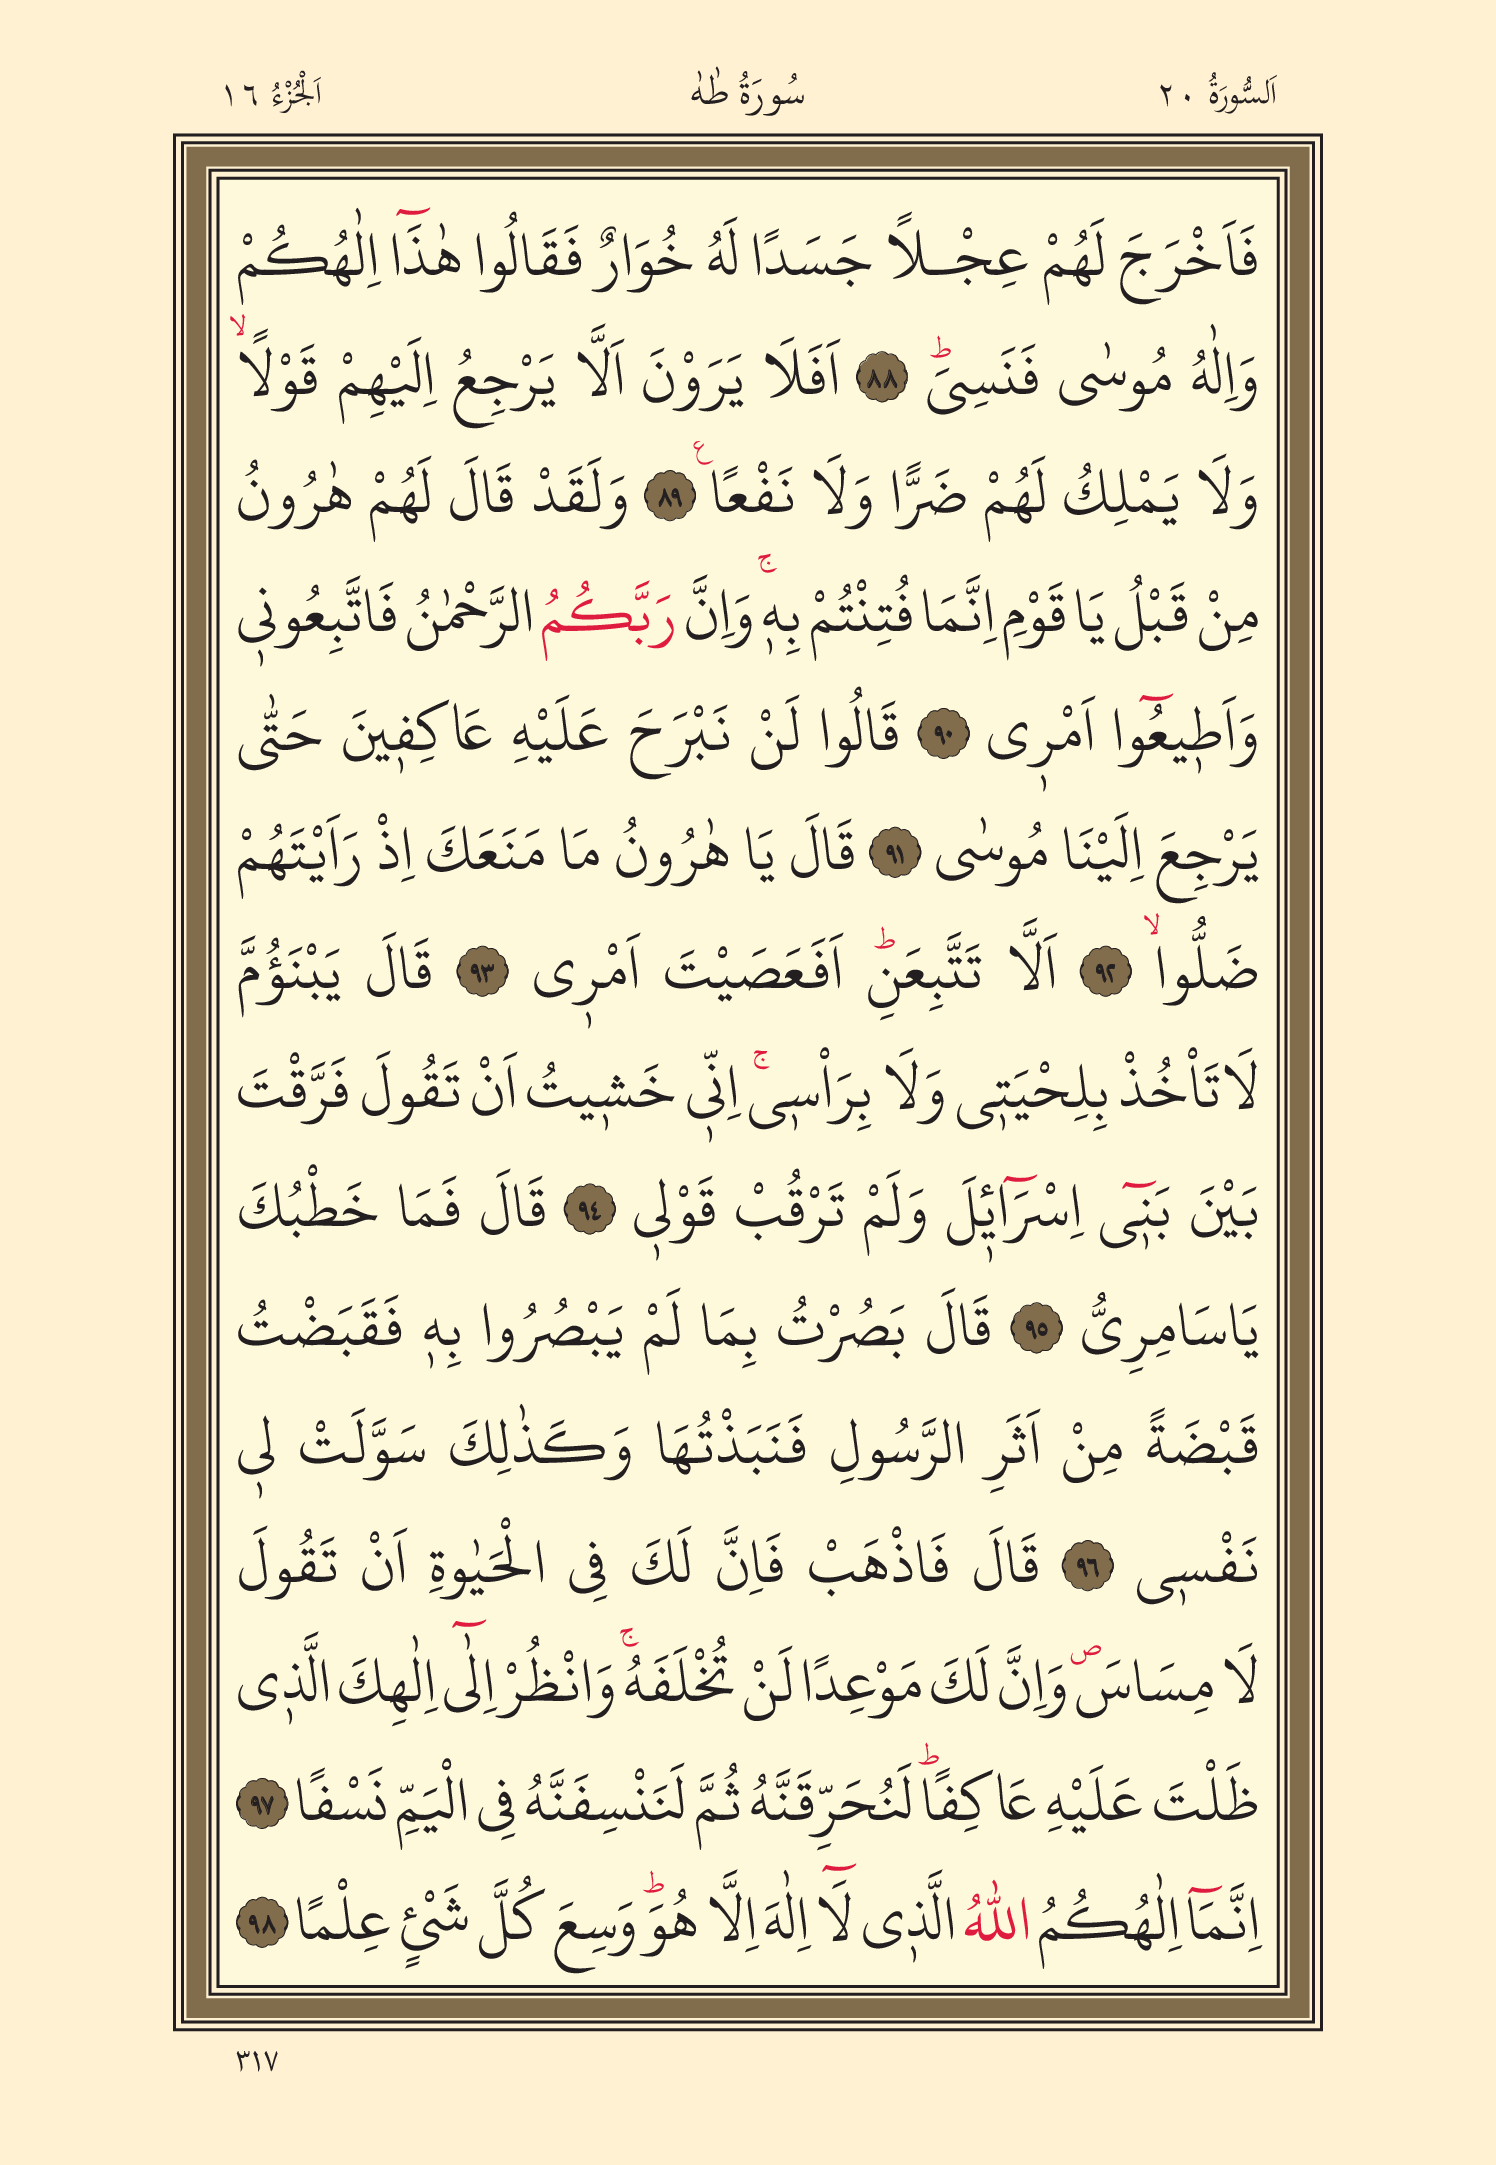 اَلسُّورَةُ ٢٠ سُورَةُ طٰهٰ اَلْجُزْءُ ١٦
فَاَخْرَجَ لَهُمْ عِجْلاً جَسَدًا لَهُ خُوَارٌ فَقَالُوا هٰذَٓا اِلٰهُكُمْ
وَاِلٰهُ مُوسٰى فَنَسِىَۜ ﴿٨٨﴾ اَفَلَا يَرَوْنَ اَلَّا يَرْجِعُ اِلَيْهِمْ قَوْلًاۙ
وَلَا يَمْلِكُ لَهُمْ ضَرًّا وَلَا نَفْعًاࣖ ﴿٨٩﴾ وَلَقَدْ قَالَ لَهُمْ هٰرُونُ
مِنْ قَبْلُ يَا قَوْمِ اِنَّمَا فُتِنْتُمْ بِهٖۚ وَاِنَّ رَبَّكُمُ الرَّحْمٰنُ فَاتَّبِعُونٖى
وَاَطٖيعُٓوا اَمْرٖى ﴿٩٠﴾ قَالُوا لَنْ نَبْرَحَ عَلَيْهِ عَاكِفٖينَ حَتّٰى
يَرْجِعَ اِلَيْنَا مُوسٰى ﴿٩١﴾ قَالَ يَا هٰرُونُ مَا مَنَعَكَ اِذْ رَاَيْتَهُمْ
ضَلُّواۙ ﴿٩٢﴾ اَلَّا تَتَّبِعَنِۜ اَفَعَصَيْتَ اَمْرٖى ﴿٩٣﴾ قَالَ يَبْنَؤُمَّ
لَا تَاْخُذْ بِلِحْيَتٖى وَلَا بِرَاْسٖىۚ اِنّٖى خَشٖيتُ اَنْ تَقُولَ فَرَّقْتَ
بَيْنَ بَنٖٓى اِسْرَٓائٖلَ وَلَمْ تَرْقُبْ قَوْلٖى ﴿٩٤﴾ قَالَ فَمَا خَطْبُكَ
يَاسَامِرِىُّ ﴿٩٥﴾ قَالَ بَصُرْتُ بِمَا لَمْ يَبْصُرُوا بِهٖ فَقَبَضْتُ
قَبْضَةً مِنْ اَثَرِ الرَّسُولِ فَنَبَذْتُهَا وَكَذٰلِكَ سَوَّلَتْ لٖى
نَفْسٖى ﴿٩٦﴾ قَالَ فَاذْهَبْ فَاِنَّ لَكَ فِى الْحَيٰوةِ اَنْ تَقُولَ
لَا مِسَاسَࣕ وَاِنَّ لَكَ مَوْعِدًا لَنْ تُخْلَفَهُۚ وَانْظُرْ اِلٰٓى اِلٰهِكَ الَّذٖى
ظَلْتَ عَلَيْهِ عَاكِفًاۜ لَنُحَرِّقَنَّهُ ثُمَّ لَنَنْسِفَنَّهُ فِى الْيَمِّ نَسْفًا ﴿٩٧﴾
اِنَّمَٓا اِلٰهُكُمُ اللّٰهُ الَّذٖى لَٓا اِلٰهَ اِلَّا هُوَۜ وَسِعَ كُلَّ شَىْءٍ عِلْمًا ﴿٩٨﴾
٣١٧